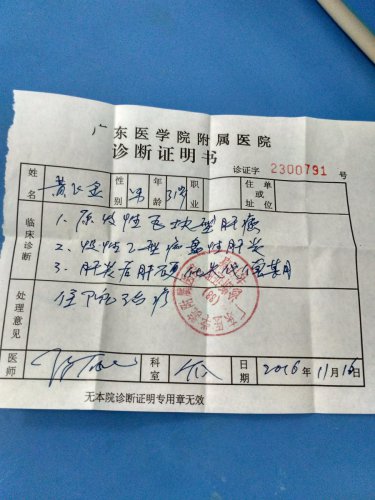 广东医学院附属医院
诊断证明书
诊证字 2300791 号
姓名 黄 性别 男 年龄 31岁 职业 单位或住址
临床诊断
1. 原发性巨块型肝癌
2. 慢性乙型病毒性肝炎
3. 肝炎后肝硬化失代偿期
处理意见
住院治疗
医师 科室 日期 2016年11月16日
无本院诊断证明专用章无效